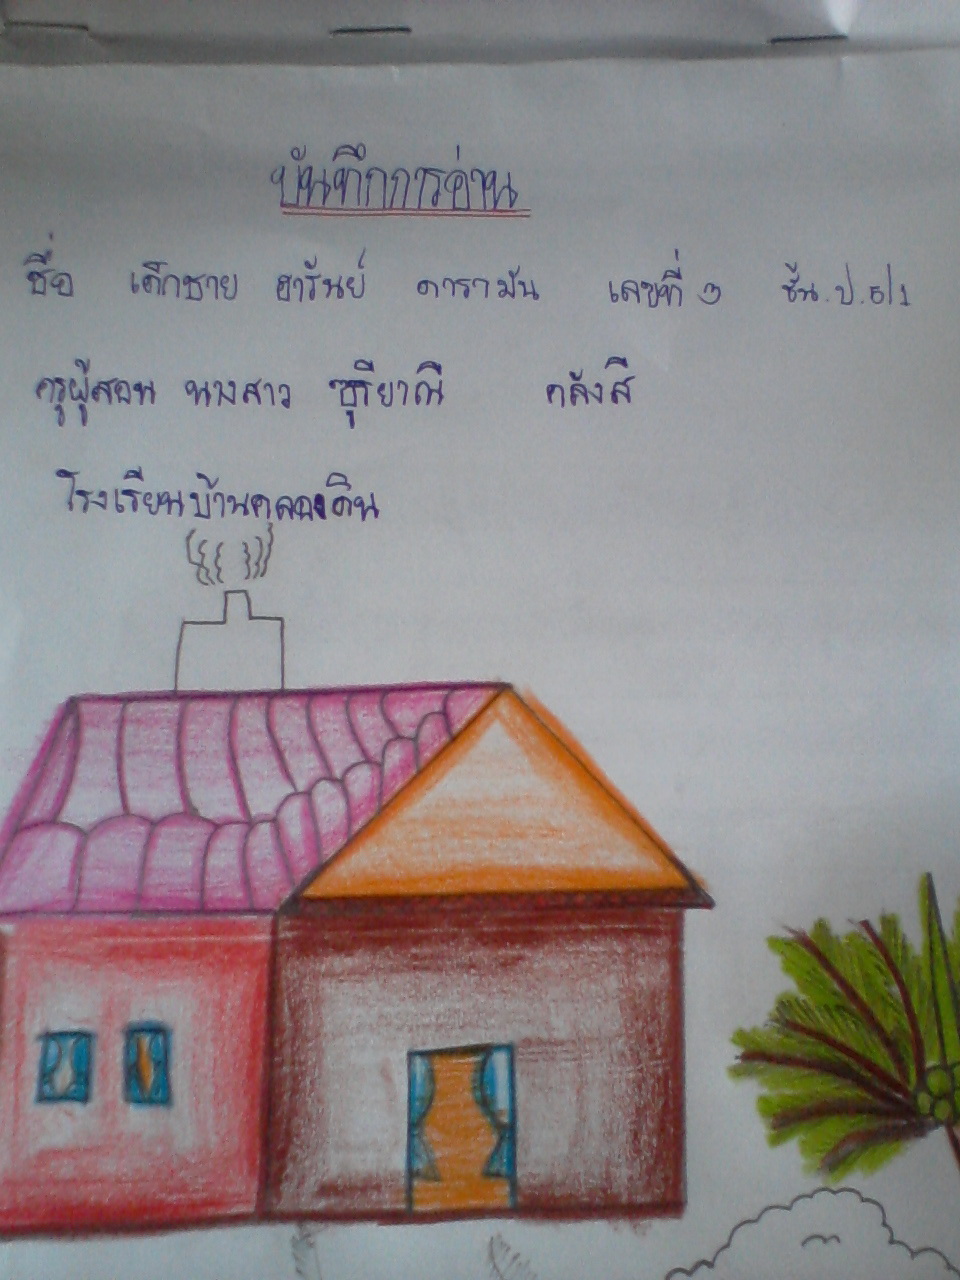 บันทึกการอ่าน
ชื่อ เด็กชาย ฮารันย์ ดารามัน เลขที่ 3 ชั้น.ป.5/1
ครูผู้สอน นางสาว ซุรียาณี คลังสี
โรงเรียนบ้านคลองดิน